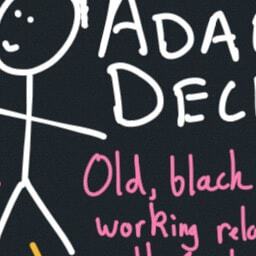 ADA
DEC
Old, black
working rela